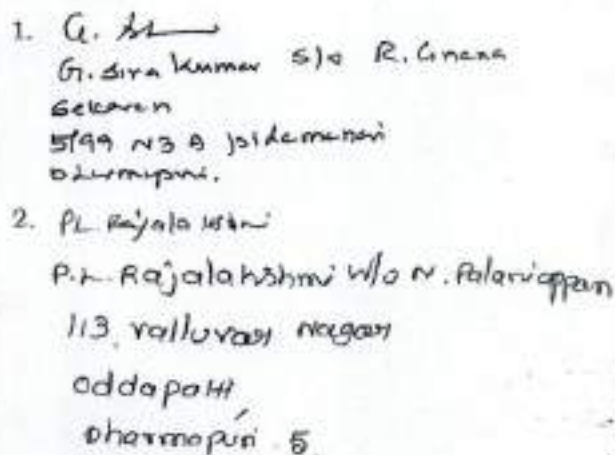 1. G.
G. Siva Kumar S/o R. Gnana
Sekaran
5/99 N3 A
Dharmapuri.
2. P.L. Rajalakshmi
P.L. Rajalakshmi W/o N. Palaniappan
113, Valluvar Nagar
Oddapatti
Dharmapuri 5